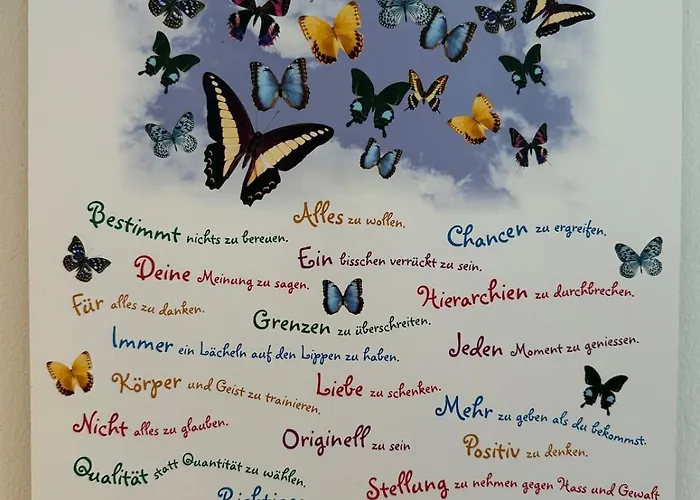 Alles zu wollen.
Bestimmt nichts zu bereuen.
Chancen zu ergreifen.
Ein bisschen verrückt zu sein.
Deine Meinung zu sagen.
Hierarchien zu durchbrechen.
Für alles zu danken.
Grenzen zu überschreiten.
Immer ein Lächeln auf den Lippen zu haben.
Jeden Moment zu geniessen.
Körper und Geist zu trainieren.
Liebe zu schenken.
Mehr zu geben als du bekommst.
Nicht alles zu glauben.
Originell zu sein
Positiv zu denken.
Qualität statt Quantität zu wählen.
Stellung zu nehmen gegen Hass und Gewalt